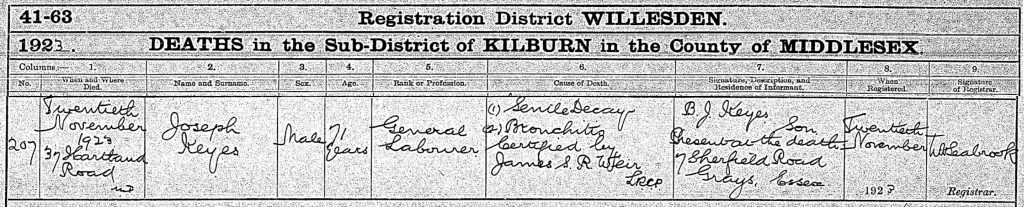 41-63
Registration District WILLESDEN.
1923. DEATHS in the Sub-District of KILBURN in the County of MIDDLESEX
Columns:— 1. 2. 3. 4. 5. 6. 7. 8. 9.
No. When and Where Died. Name and Surname. Sex. Age. Rank or Profession. Cause of Death. Signature, Description, and Residence of Informant. When Registered. Signature of Registrar.
207
Twentieth
November
1923
37 Hartland
Road
Joseph
Keyes
Male
71
Years
General
Labourer
(1) Senile Decay
(2) Bronchitis
Certified by
James S. R. Weir
LRCP
B. J. Keyes
Son
Present at the death
7 Sherfield Road
Grays, Essex
Twentieth
November
1923
Seabrook
Registrar.